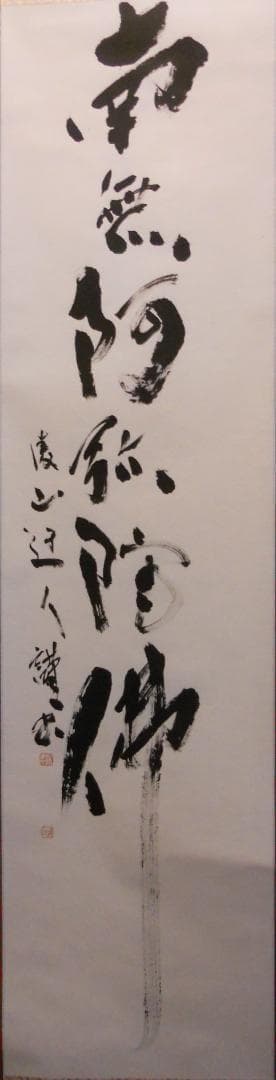 南無阿弥陀佛
山迂人謹書